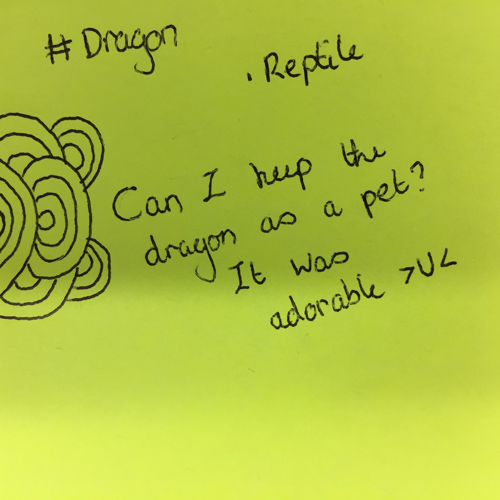 # Dragon
. Reptile
Can I keep the
dragon as a pet?
It was
adorable >U<